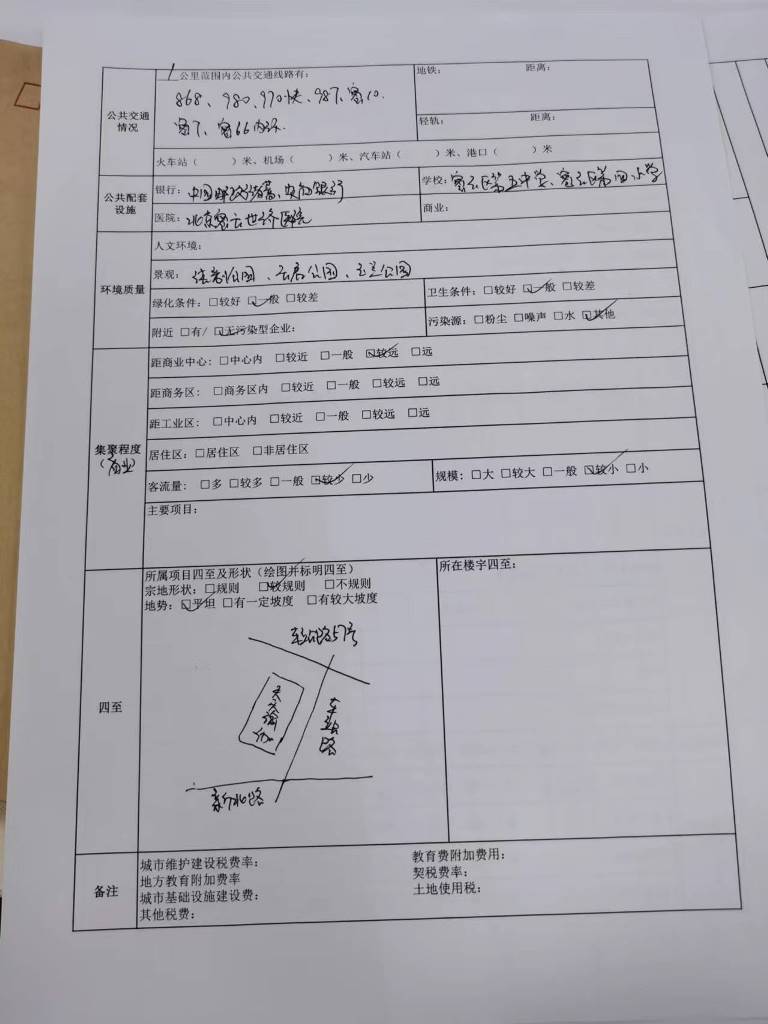 公共交通情况
1公里范围内公共交通线路有：
868、980、970快、987、密10、
密7、密66内环
地铁： 距离：
轻轨： 距离：
火车站（ ）米、机场（ ）米、汽车站（ ）米、港口（ ）米
公共配套设施
银行：中国邮政储蓄、农商银行
学校：密云区第五中学、密云区第四小学
医院：北京密云世济医院
商业：
环境质量
人文环境：
景观： 公园、云启公园、玉兰公园
绿化条件：□较好 ☑一般 □较差
卫生条件：□较好 ☑一般 □较差
附近 □有/ ☑无污染型企业：
污染源：□粉尘 □噪声 □水 ☑其他
集聚程度（商业）
距商业中心：□中心内 □较近 □一般 ☑较远 □远
距商务区：□商务区内 □较近 □一般 □较远 □远
距工业区：□中心内 □较近 □一般 □较远 □远
居住区：□居住区 □非居住区
客流量：□多 □较多 □一般 ☑较少 □少
规模：□大 □较大 □一般 ☑较小 □小
主要项目：
四至
所属项目四至及形状（绘图并标明四至）
宗地形状：□规则 ☑较规则 □不规则
地势：☑平坦 □有一定坡度 □有较大坡度
所在楼宇四至：
路57号
车站路
新北路
备注
城市维护建设税费率：
地方教育附加费率
城市基础设施建设费：
其他税费：
教育费附加费用：
契税费率：
土地使用税：